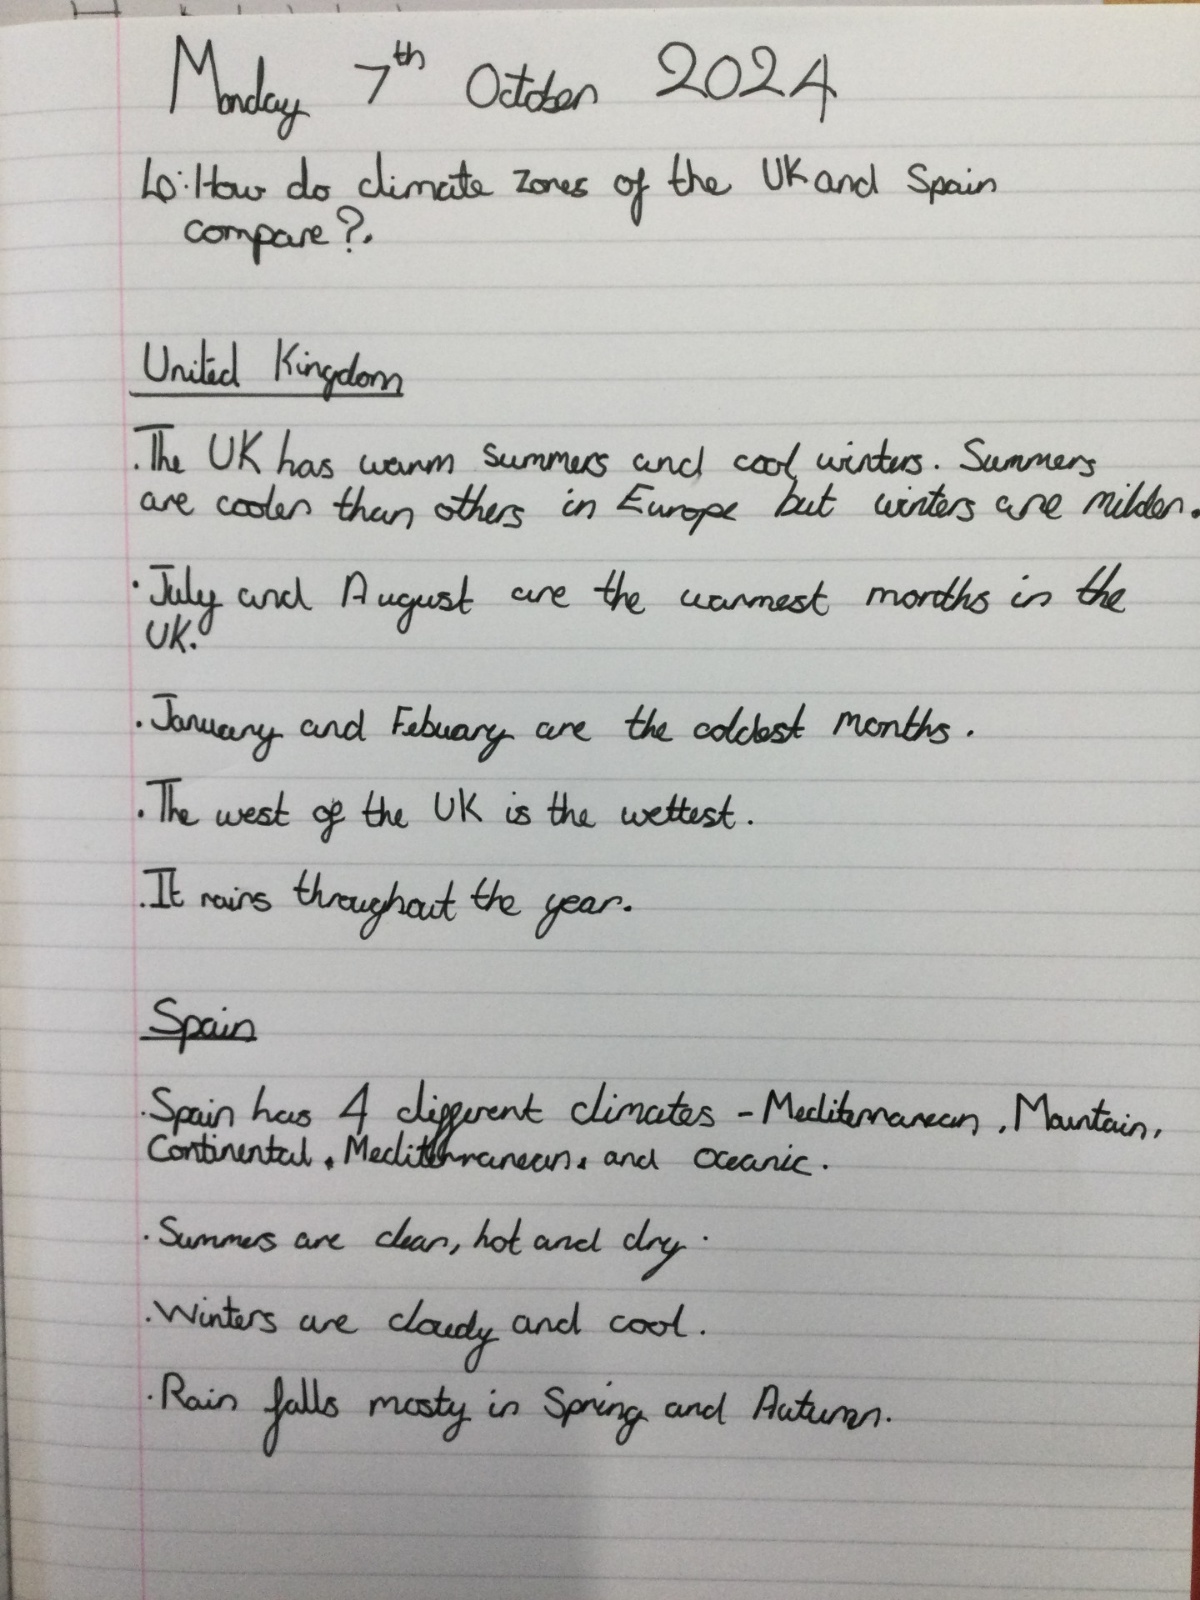 Monday 7th October 2024
LO: How do climate zones of the UK and Spain
compare?.
United Kingdom
. The UK has warm summers and cool winters. Summers
are cooler than others in Europe but winters are milder.
· July and August are the warmest months in the
UK.
. January and Febuary are the coldest months.
. The west of the UK is the wettest.
. It rains throughout the year.
Spain
. Spain has 4 different climates - Mediterranean, Mountain,
Continental, Mediterranean, and oceanic.
. Summers are clear, hot and dry.
. Winters are cloudy and cool.
. Rain falls mosty in Spring and Autumn.